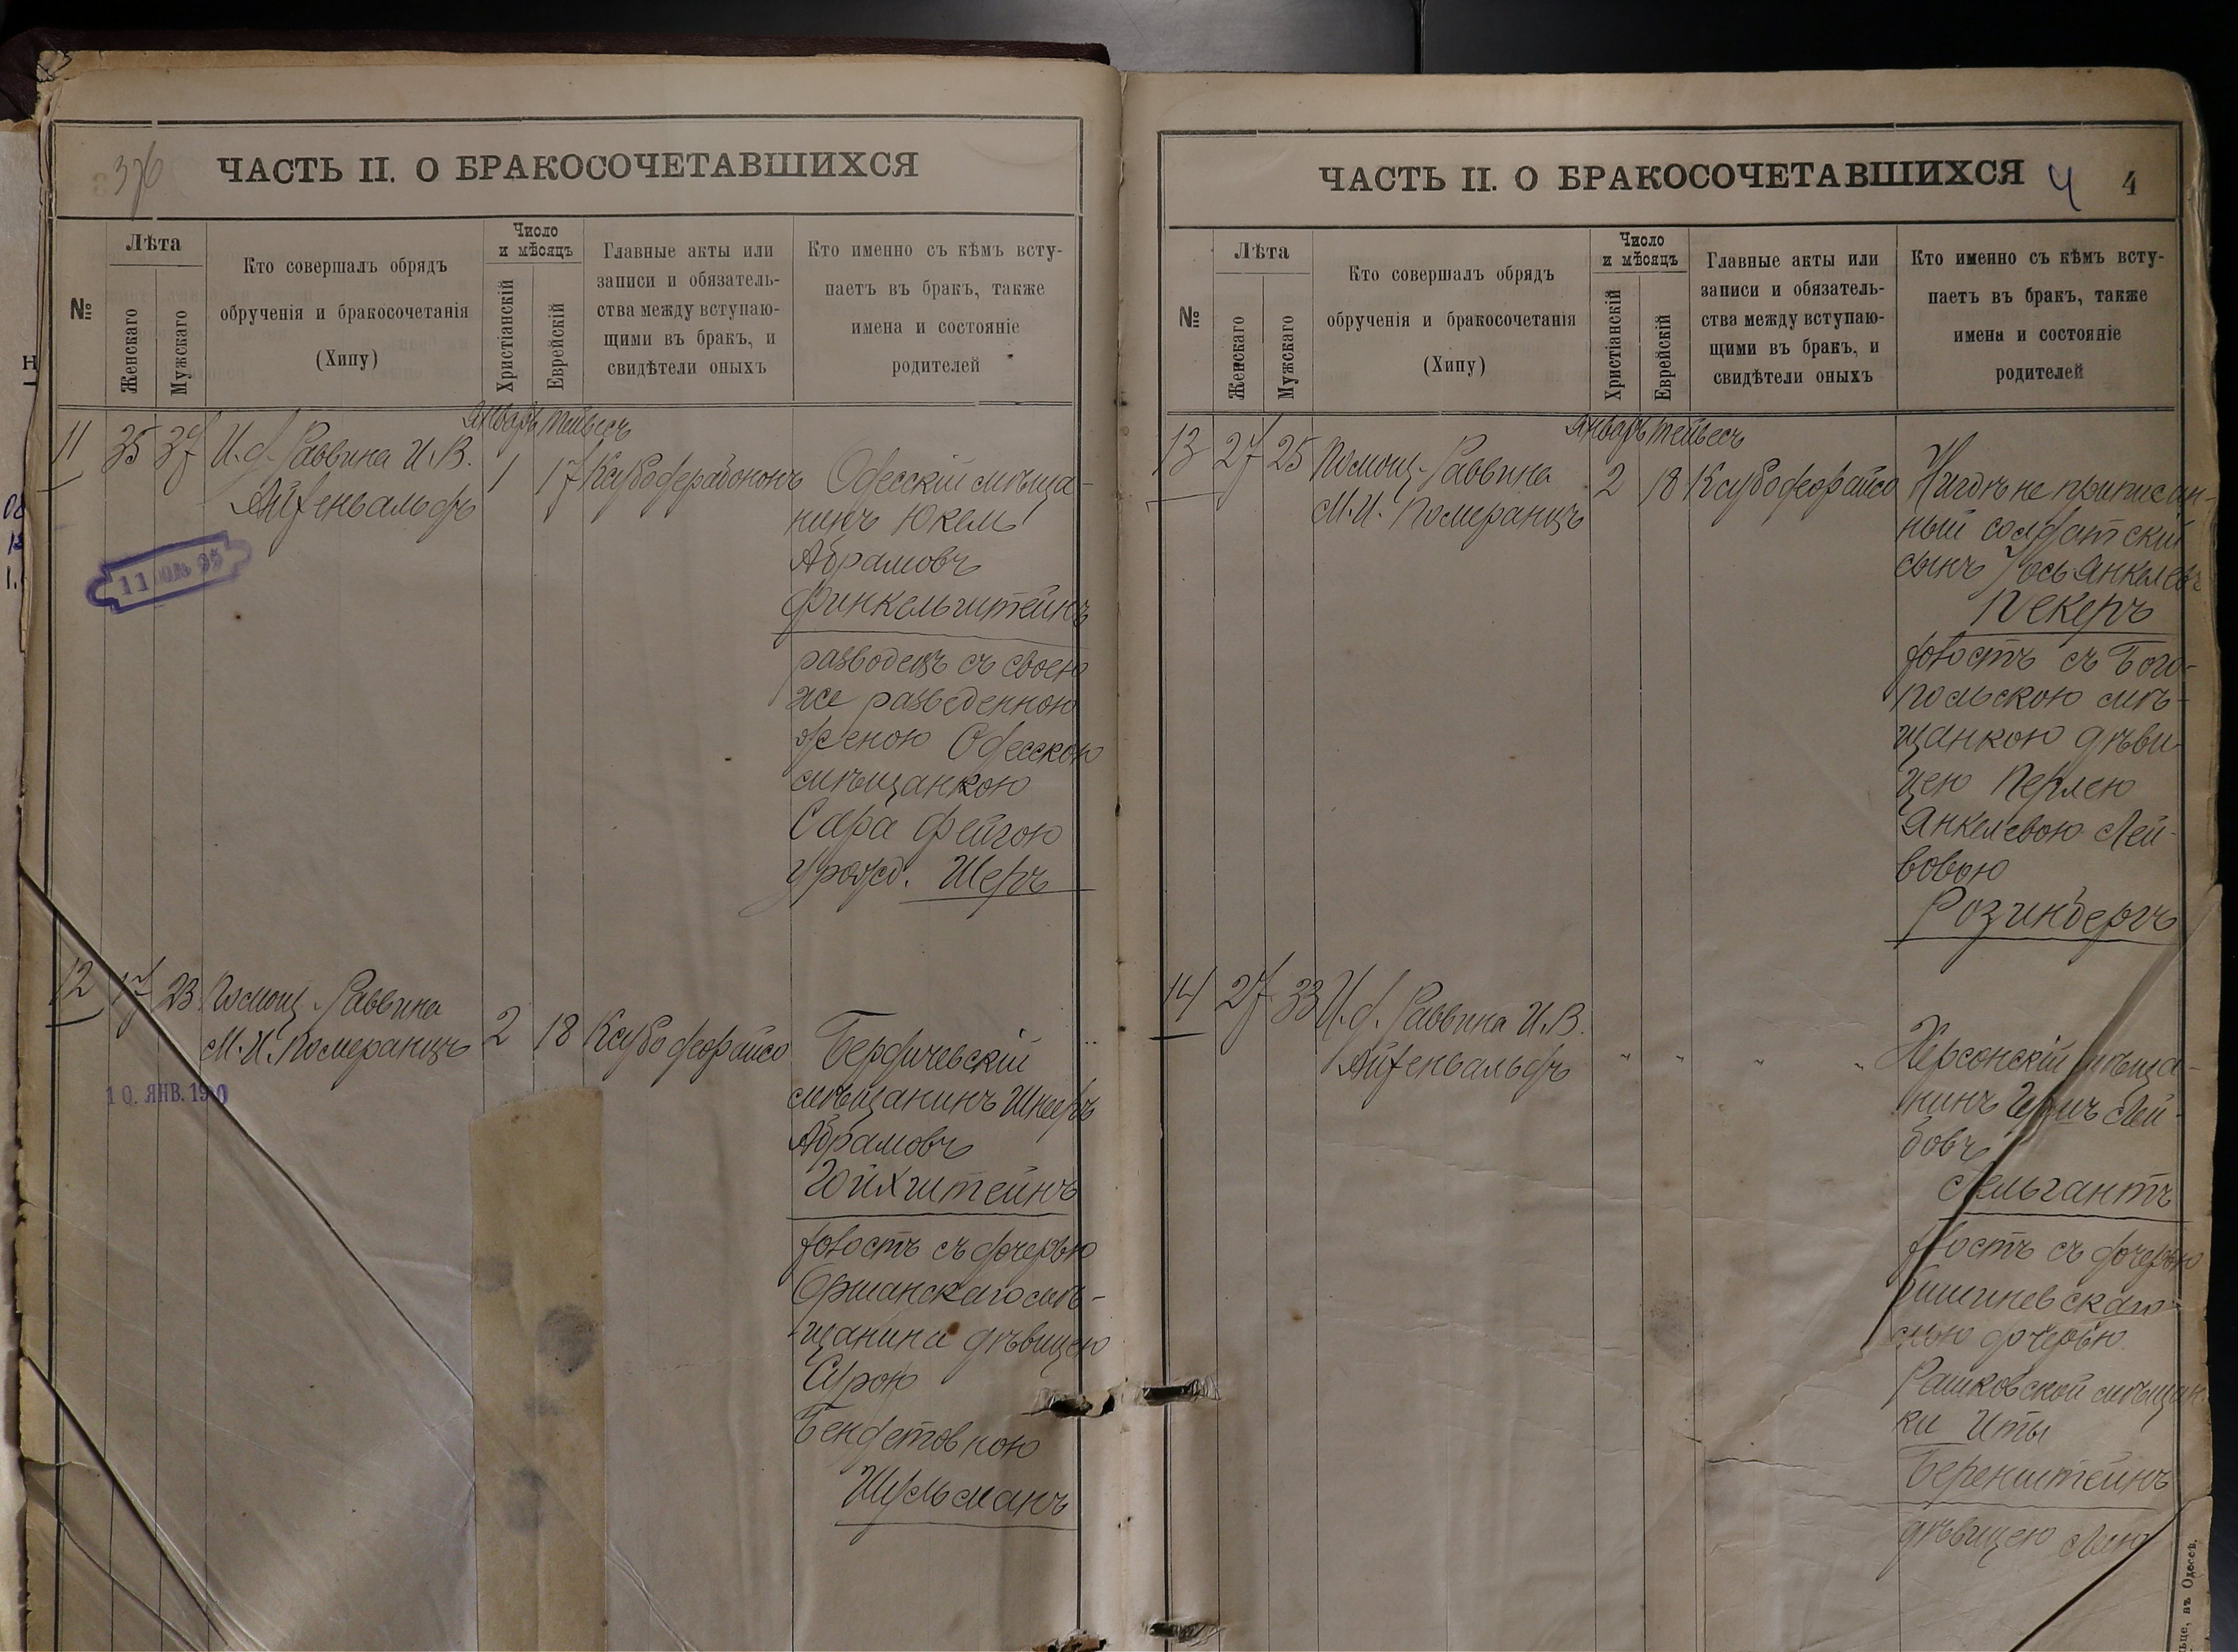 376
ЧАСТЬ II. О БРАКОСОЧЕТАВШИХСЯ
№
Лѣта
Женскаго
Мужскаго
Кто совершалъ обрядъ
обрученія и бракосочетанія
(Хипу)
Число
и мѣсяцъ
Христіанскій
Еврейскій
Главные акты или
записи и обязатель-
ства между вступаю-
щими въ бракъ, и
свидѣтели оныхъ
Кто именно съ кѣмъ всту-
паетъ въ бракъ, также
имена и состояніе
родителей
Январь Тейвесъ
11 35 37 И.д. Раввина И.В.
Айзенвальдъ
1 17
Одесскій мѣща-
нинъ Юкель
Абрамовъ
Финкельштейнъ
разводецъ съ своею
же разведенною
женою Одесскою
мѣщанкою
Сара Фейгою
урожд. Шеръ
12 17 23 Помощ. Раввина
М.И. Померанцъ
2 18 Ксубо деорайсо
10. ЯНВ. 19
Бердичевскій
мѣщанинъ Шнееръ
Абрамовъ
Гойхштейнъ
холостъ съ дочерью
Оршанскаго мѣ-
щанина дѣвицею
Сурою
Бендетовною
Шульманъ
ЧАСТЬ II. О БРАКОСОЧЕТАВШИХСЯ 4 4
№
Лѣта
Женскаго
Мужскаго
Кто совершалъ обрядъ
обрученія и бракосочетанія
(Хипу)
Число
и мѣсяцъ
Христіанскій
Еврейскій
Главные акты или
записи и обязатель-
ства между вступаю-
щими въ бракъ, и
свидѣтели оныхъ
Кто именно съ кѣмъ всту-
паетъ въ бракъ, также
имена и состояніе
родителей
Январь Тейвесъ
13 27 25 Помощ. Раввина
М.И. Померанцъ
2 18 Ксубо деорайсо
Нигдѣ не приписан-
ный солдатскій
сынъ Янкелевъ
Пекеръ
холостъ съ Бого-
польскою мѣ-
щанкою дѣви-
цею Перлею
Янкелевою Лей-
бовою
Розинбергъ
14 27 33 И.д. Раввина И.В.
Айзенвальдъ
" " " "
Херсонскій мѣща-
нинъ Гершъ Лей-
бовъ
Гельгантъ
холостъ съ дочерью
Кишиневскаго
дочерью
Рашковской мѣщан-
ки Иты
Беренштейнъ
дѣвицею
въ Одессѣ.